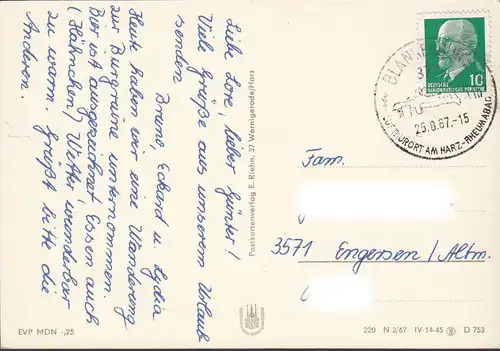 Liebe Lore, lieber Günter!
Viele Grüße aus unserem Urlaub
senden
Bruno Eckard u. Lydia
Heute haben wir eine Wanderung
zur Burgruine unternommen.
Bier ist ausgezeichnet Essen auch
(Hähnchen) Wetter wunderbar
zu warm. Grüßt bitte die
Anderen.
Postkartenverlag E. Riehn, 37 Wernigerode/Harz
EVP MDN -,25
DEUTSCHE
DEMOKRATISCHE REPUBLIK
10
25.8.67.-15
LUFTKURORT AM HARZ-RHEUMABAD
Fam.
3571 Engersen / Altm.
220 N 3/67 IV-14-45 D 753